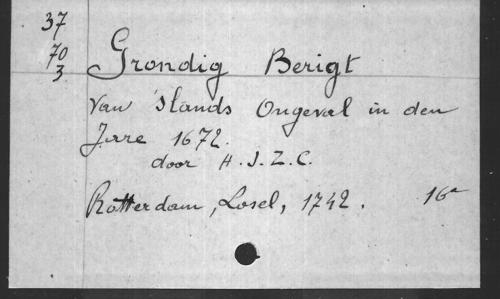 37
70
3
Grondig Berigt
Van 'slands Ongeval in den
Jare 1672.
door H.J.Z.C.
Rotterdam, Losel, 1742. 16º